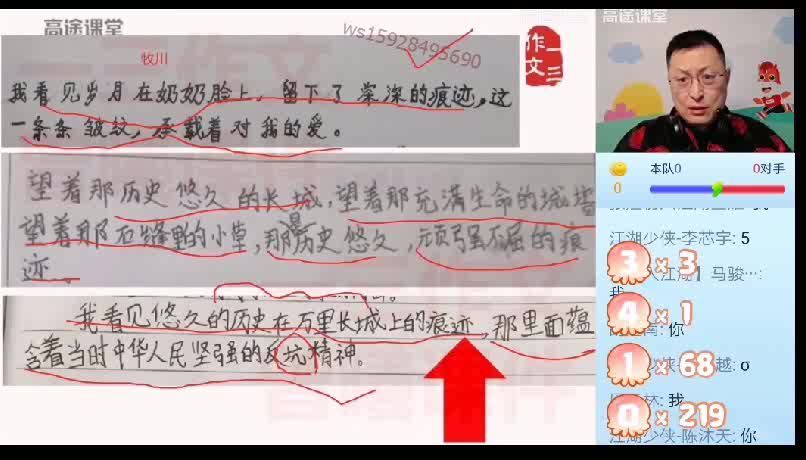 高途课堂
高途课堂
ws15928495690
作文
一三
牧川
我看见岁月在奶奶脸上，留下了深深的痕迹，这
一条条皱纹，承载着对我的爱。
望着那历史悠久的长城，望着那充满生命的城墙
望着那石缝里的小草，那是历史悠久，顽强不屈的痕
迹。
我看见悠久的历史在万里长城上的痕迹，那里面蕴
含着当时中华人民坚强的反抗精神。
本队0
0对手
0
江湖少侠-李芯宇: 5
3 × 3
江湖】马骏…:
我
4 × 1
南: 你
1 × 68
越: σ
林: 我
0 × 219
江湖少侠-陈沐天: 你